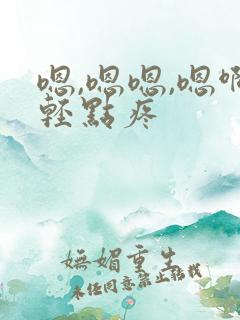 嗯,嗯嗯,嗯啊
輕點疼
嫵媚重生
未经同意禁止转载